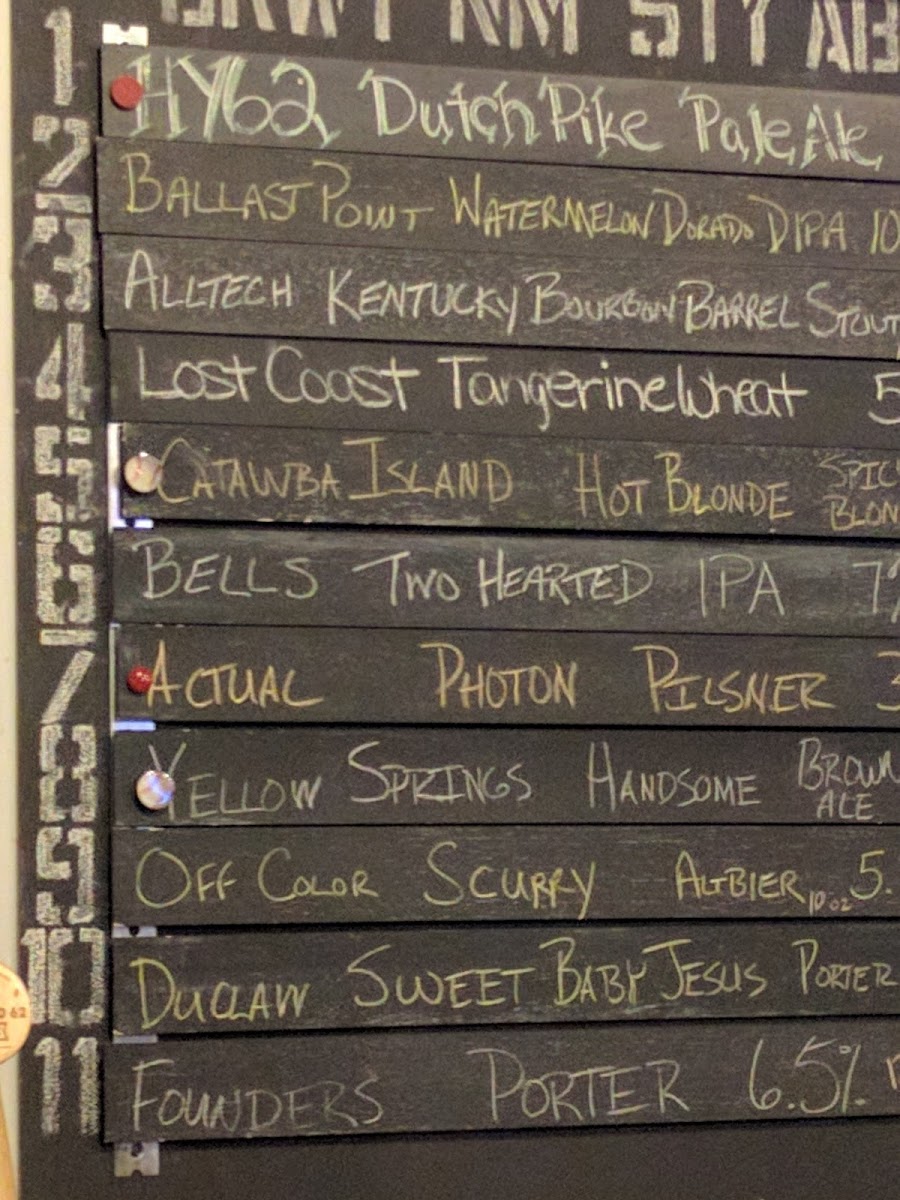 BRWY NM STY AB
1 HY62 Dutch Pike Pale Ale
2 BALLAST POINT WATERMELON DORADO DIPA 10
3 ALLTECH KENTUCKY BOURBON BARREL STOUT
4 Lost Coast Tangerine Wheat 5
5 CATAWBA ISLAND HOT BLONDE SPIC
BLON
6 BELLS TWO HEARTED IPA 7%
7 ACTUAL PHOTON PILSNER 3
8 YELLOW SPRINGS HANDSOME BROWN
ALE
9 OFF COLOR SCURRY ALTBIER 10 oz 5.
10 DUCLAW SWEET BABY JESUS PORTER
11 FOUNDERS PORTER 6.5%